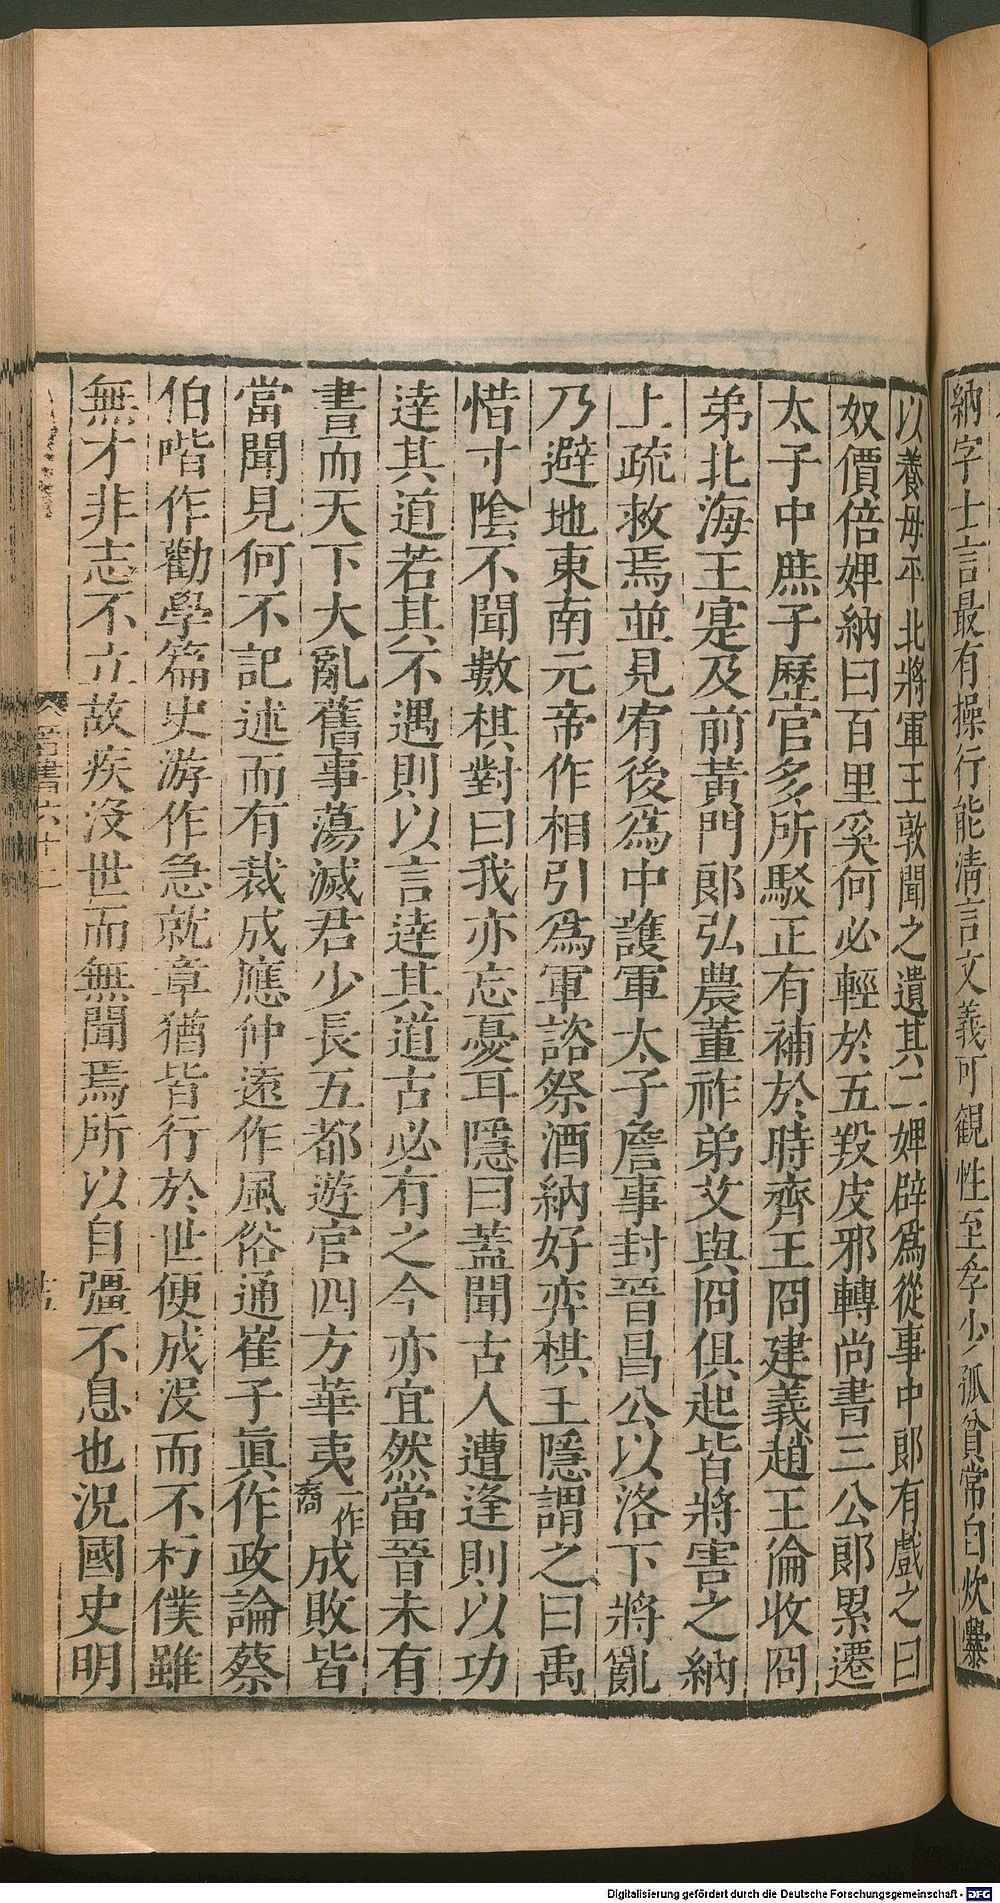 納字士言最有操行能清言文義可觀性至孝少孤貧常自炊爨
以養母平北將軍王敦聞之遺其二婢辟爲從事中郎有戲之曰
奴價倍婢納曰百里奚何必輕於五羖皮邪轉尚書三公郎累遷
太子中庶子歷官多所駁正有補於時齊王冏建義趙王倫收冏
弟北海王寔及前黃門郎弘農董祚弟艾與冏俱起皆將害之納
上疏救焉並見宥後爲中護軍太子詹事封晉昌公以洛下將亂
乃避地東南元帝作相引爲軍諮祭酒納好弈棋王隱謂之曰禹
惜寸陰不聞數棋對曰我亦忘憂耳隱曰蓋聞古人遭逢則以功
達其道若其不遇則以言達其道古必有之今亦宜然當晉未有
書而天下大亂舊事蕩滅君少長五都遊官四方華夷一作裔成敗皆
當聞見何不記述而有裁成應仲遠作風俗通崔子眞作政論蔡
伯喈作勸學篇史游作急就章猶皆行於世便成沒而不朽僕雖
無才非志不立故疾沒世而無聞焉所以自彊不息也況國史明
晉書六十二
Digitalisierung gefördert durch die Deutsche Forschungsgemeinschaft - DFG